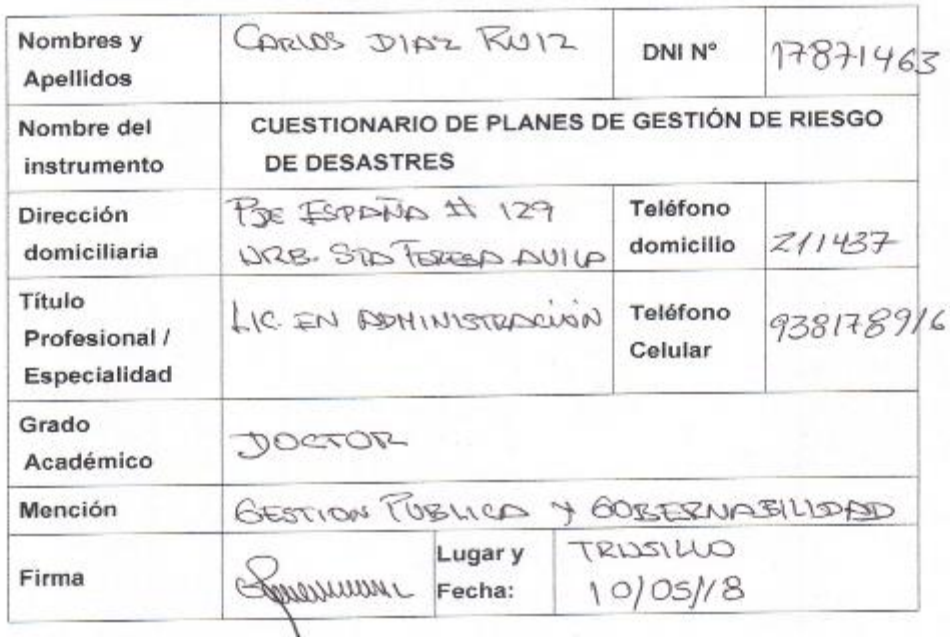 Nombres y Apellidos CARLOS DIAZ RUIZ DNI N° 17871463
Nombre del instrumento CUESTIONARIO DE PLANES DE GESTIÓN DE RIESGO
DE DESASTRES
Dirección domiciliaria PJE ESPAÑA # 129
URB. STA TERESA AVILA
Teléfono domicilio 211437
Título Profesional / Especialidad LIC. EN ADMINISTRACIÓN
Teléfono Celular 938178916
Grado Académico DOCTOR
Mención GESTION PUBLICA Y GOBERNABILIDAD
Firma
Lugar y Fecha: TRUJILLO
10/05/18